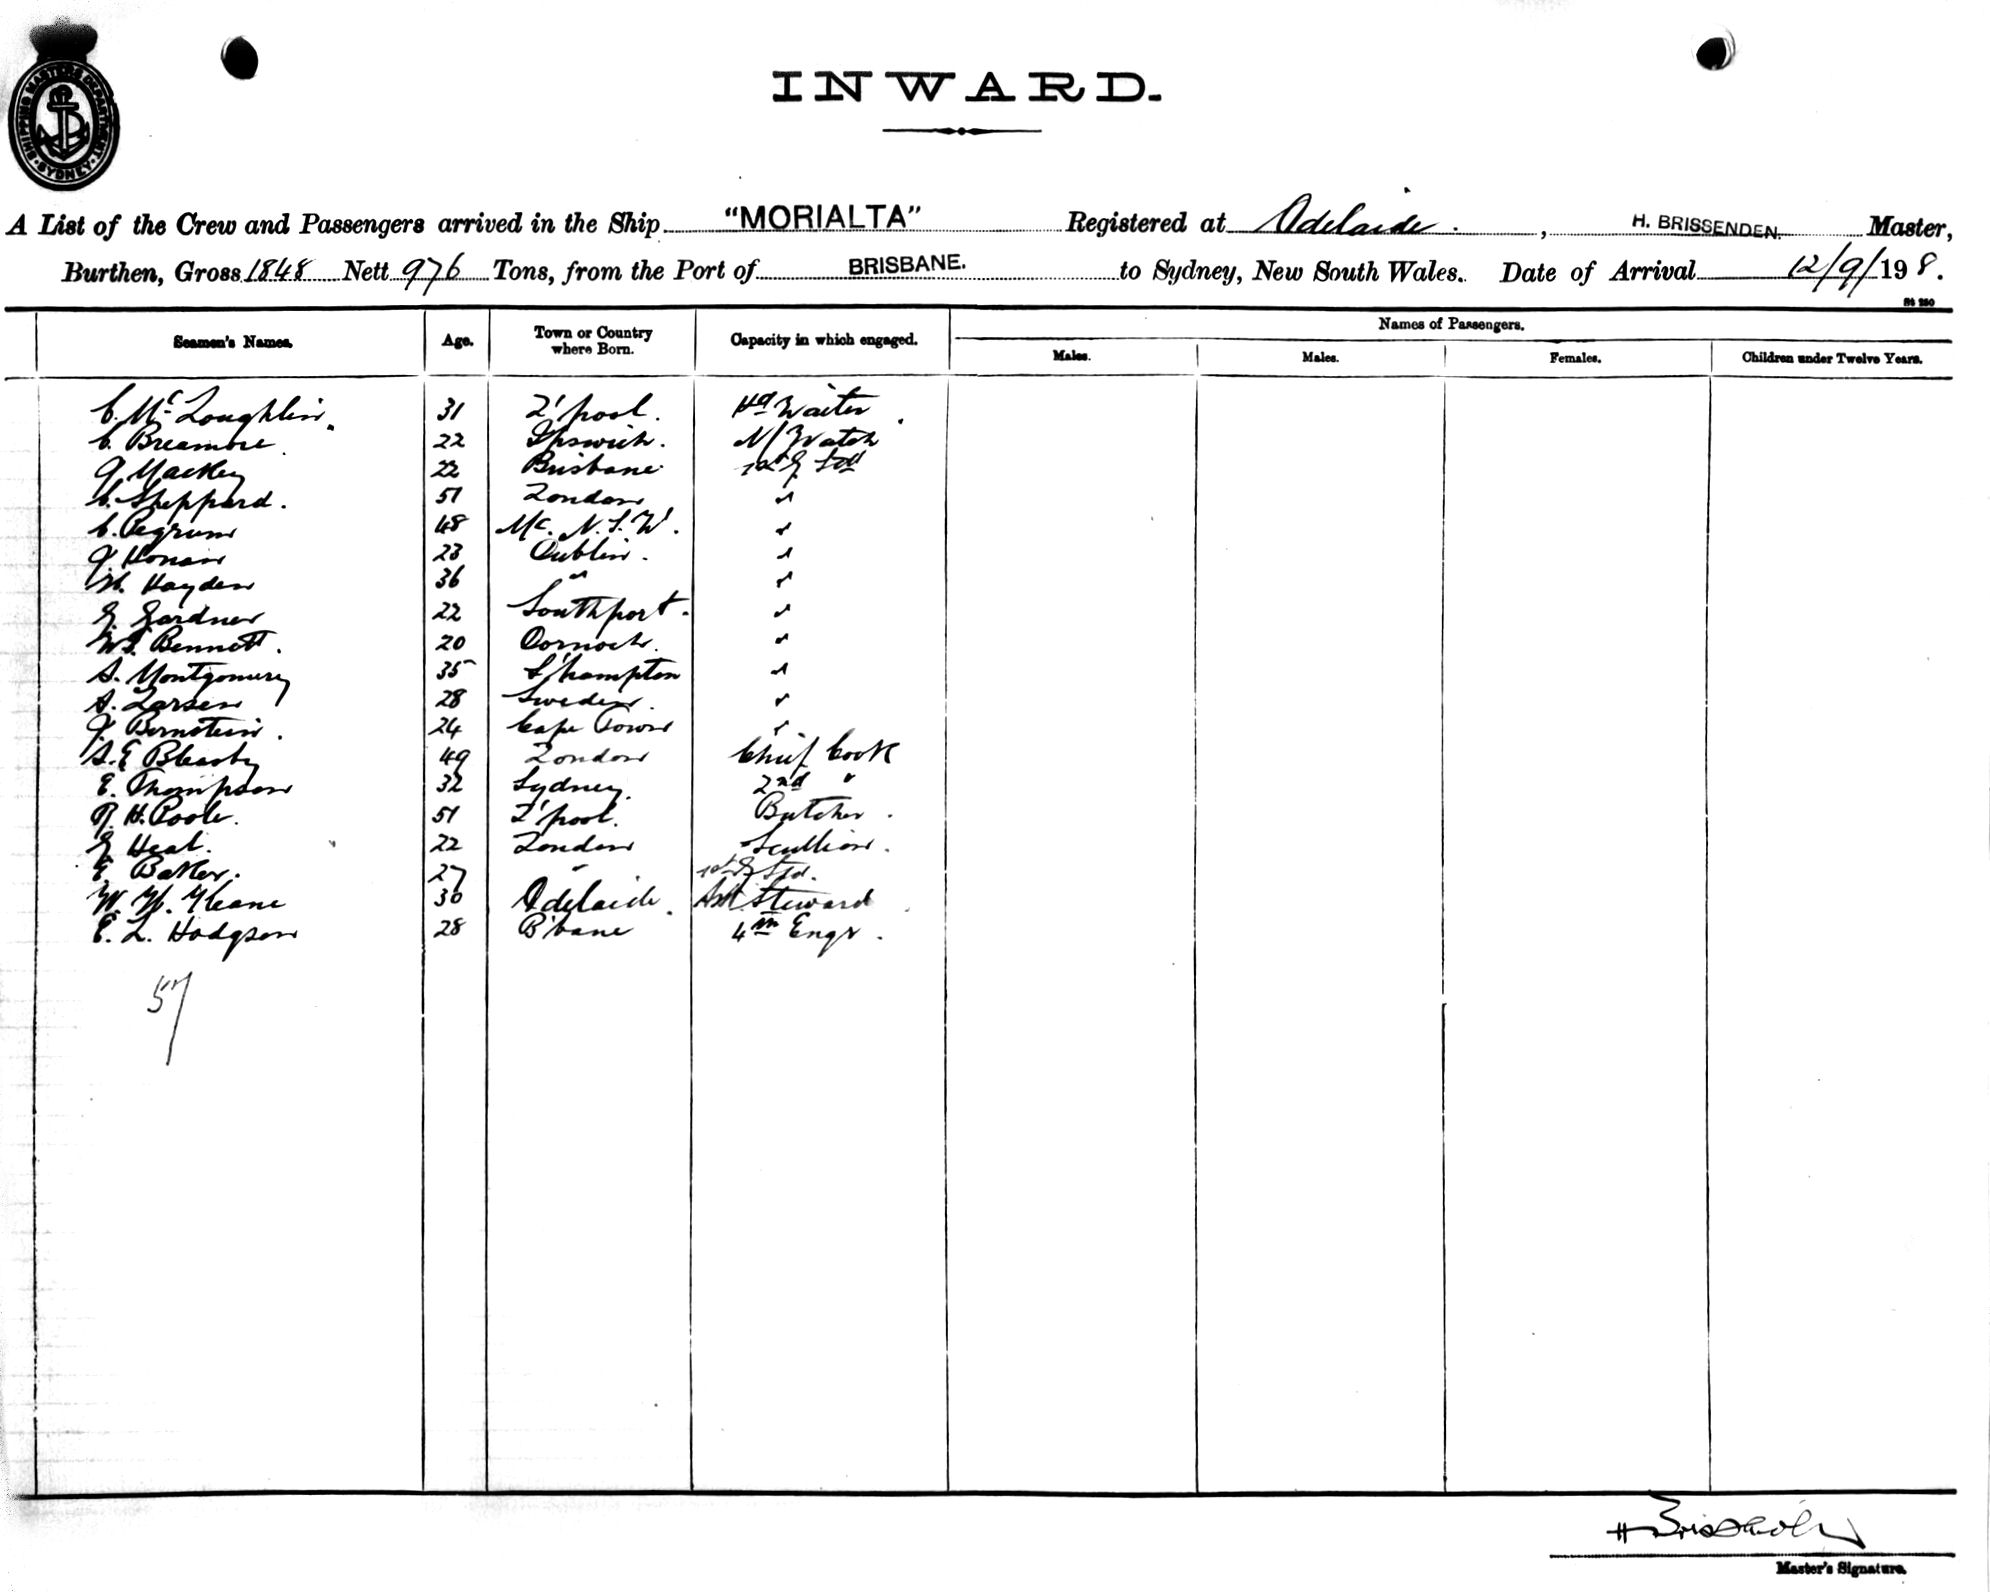 SHIPPING MASTERS DEPARTMENT · SYDNEY ·
INWARD.
A List of the Crew and Passengers arrived in the Ship "MORIALTA" Registered at Adelaide. , H. BRISSENDEN. Master,
Burthen, Gross 1848 Nett 976 Tons, from the Port of BRISBANE. to Sydney, New South Wales. Date of Arrival 12/9/198.
St 260
Seamen's Names. Age. Town or Country where Born. Capacity in which engaged. Names of Passengers.
Males. Males. Females. Children under Twelve Years.
C. McLoughlin. 31 L'pool. Hd Waiter
C. Breamore 22 Ipswich. N/Watch
J Mackey 22 Brisbane 1st G Std
C. Sheppard. 51 London "
C. Pegrum 48 Mc. N.S.W. "
J. Honan 23 Dublin. "
W. Hayden 36 " "
G. Gardner 22 Southport. "
W.S. Bennett. 20 Dornoch. "
A. Montgomery 35 S'hampton "
A. Larsen 28 Sweden. "
J. Bernstein. 24 Cape Town "
A.E Bleasby 49 London Chief Cook
E. Thompson 32 Sydney. 2nd "
R. H. Poole. 51 L'pool. Butcher.
G Heal. 22 London Scullion.
E. Baker. 27 " 1st G Std.
W. H. Kleane 30 Adelaide. Asst Steward
E. L. Hodgson 28 B'bane 4th Engr.
57
H Brissenden
Master's Signature.